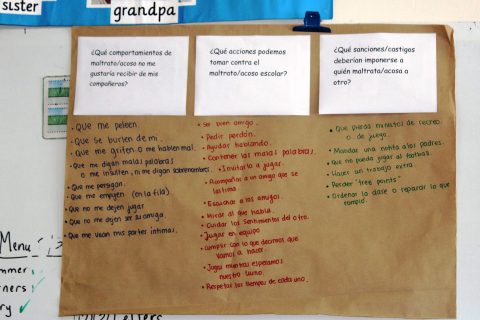 sister
grandpa
¿Qué comportamientos de
maltrato/acoso no me
gustaría recibir de mis
compañeros?
¿Qué acciones podemos
tomar contra el
maltrato/acoso escolar?
¿Qué sanciones/castigos
deberían imponerse a
quién maltrata/acosa a
otro?
• Que me peleen.
• Que se burlen de mí.
• Que me griten o me hablen mal.
• Que me digan malas palabras
o me insulten, ni me digan sobrenombres.
• Que me persigan.
• Que me empujen (en la fila).
• Que no me dejen jugar
• Que no me dejen ser su amiga.
• Que me vean mis partes íntimas.
• Ser buen amigo.
• Pedir perdón.
• Ayudar hablando.
• Contener las malas palabras.
• Invitarlo a jugar.
• Acompañar a un amigo que se
lastima
• Escuchar a los amigos.
• Mirar al que habla.
• Cuidar los sentimientos del otro.
• Jugar en equipo
• Cumplir con lo que decimos que
vamos a hacer
• Jugar mientras esperamos
nuestro turno.
• Respetar los tiempos de cada uno.
• Que pierda minutos de recreo
o de juego.
• Mandar una notita a los padres.
• Que no pueda jugar al football.
• Hacer un trabajo extra.
• Perder "free points"
• Ordenar la clase o reparar lo que
rompió
Menu
Letters